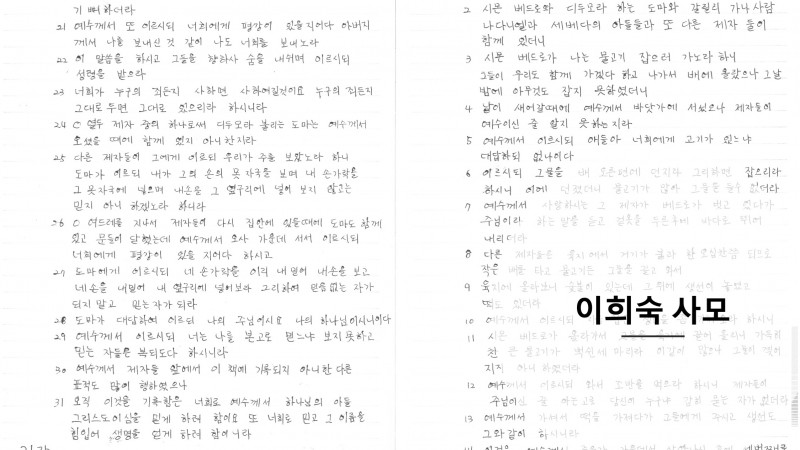 기뻐하더라
21 예수께서 또 이르시되 너희에게 평강이 있을지어다 아버지
께서 나를 보내신 것 같이 나도 너희를 보내노라
22 이 말씀을 하시고 그들을 향하사 숨을 내쉬며 이르시되
성령을 받으라
23 너희가 누구의 죄든지 사하면 사하여질것이요 누구의 죄든지
그대로 두면 그대로 있으리라 하시니라
24 ○ 열두 제자 중의 하나로써 디두모라 불리는 도마는 예수께서
오셨을 때에 함께 있지 아니한지라
25 다른 제자들이 그에게 이르되 우리가 주를 보았노라 하니
도마가 이르되 내가 그의 손의 못 자국을 보며 내 손가락을
그 못자국에 넣으며 내손을 그 옆구리에 넣어 보지 않고는
믿지 아니 하겠노라 하니라
26 ○ 여드레를 지나서 제자들이 다시 집안에 있을때에 도마도 함께
있고 문들이 닫혔는데 예수께서 오사 가운데 서서 이르시되
너희에게 평강이 있을 지어다 하시고
27 도마에게 이르시되 네 손가락을 이리 내밀어 내손을 보고
네손을 내밀어 내 옆구리에 넣어보라 그리하여 믿음없는 자가
되지 말고 믿는자가 되라
28 도마가 대답하여 이르되 나의 주님이시요 나의 하나님이시니이다
29 예수께서 이르시되 너는 나를 본고로 믿느냐 보지못하고
믿는 자들은 복되도다 하시니라
30 예수께서 제자들 앞에서 이 책에 기록되지 아니한 다른
표적도 많이 행하셨으나
31 오직 이것을 기록함은 너희로 예수께서 하나님의 아들
그리스도이심을 믿게 하려 함이요 또 너희로 믿고 그 이름을
힘입어 생명을 얻게 하려 함이니라
2 시몬 베드로와 디두모라 하는 도마와 갈릴리 가나 사람
나다나엘과 세베대의 아들들과 또 다른 제자 둘이
함께 있더니
3 시몬 베드로가 나는 물고기 잡으러 가노라 하니
그들이 우리도 함께 가겠다 하고 나가서 배에 올랐으나 그날
밤에 아무것도 잡지 못하였더니
4 날이 새어갈때에 예수께서 바닷가에 서셨으나 제자들이
예수이신 줄 알지 못하는지라
5 예수께서 이르시되 애들아 너희에게 고기가 있느냐
대답하되 없나이다
6 이르시되 그물을 배 오른편에 던지라 그리하면 잡으리라
하시니 이에 던졌더니 물고기가 많아 그물을 들수 없더라
7 예수께서 사랑하시는 그 제자가 베드로가 벗고 있다가
주님이라 하는 말을 듣고 겉옷을 두른후에 바다로 뛰어
내리더라
8 다른 제자들은 육지에서 거리가 불과 한 오십칸쯤 되므로
작은 배를 타고 물고기든 그물을 끌고 와서
9 육지에 올라보니 숯불이 있는데 그 위에 생선이 놓였고
떡도 있더라
10 예수께서 이르시되
이희숙 사모
11 시몬 베드로가 올라가서 그물을 육지에 끌어 올리니 가득히
찬 큰 물고기가 백쉰세 마리라 이같이 많으나 그물이 찢어
지지 아니 하였더라
12 예수께서 이르시되 와서 조반을 먹으라 하시니 제자들이
주님이신 줄 아는고로 당신이 누구냐 감히 묻는 자가 없더라
13 예수께서 가셔서 떡을 가져다가 그들에게 주시고 생선도
그와같이 하시니라